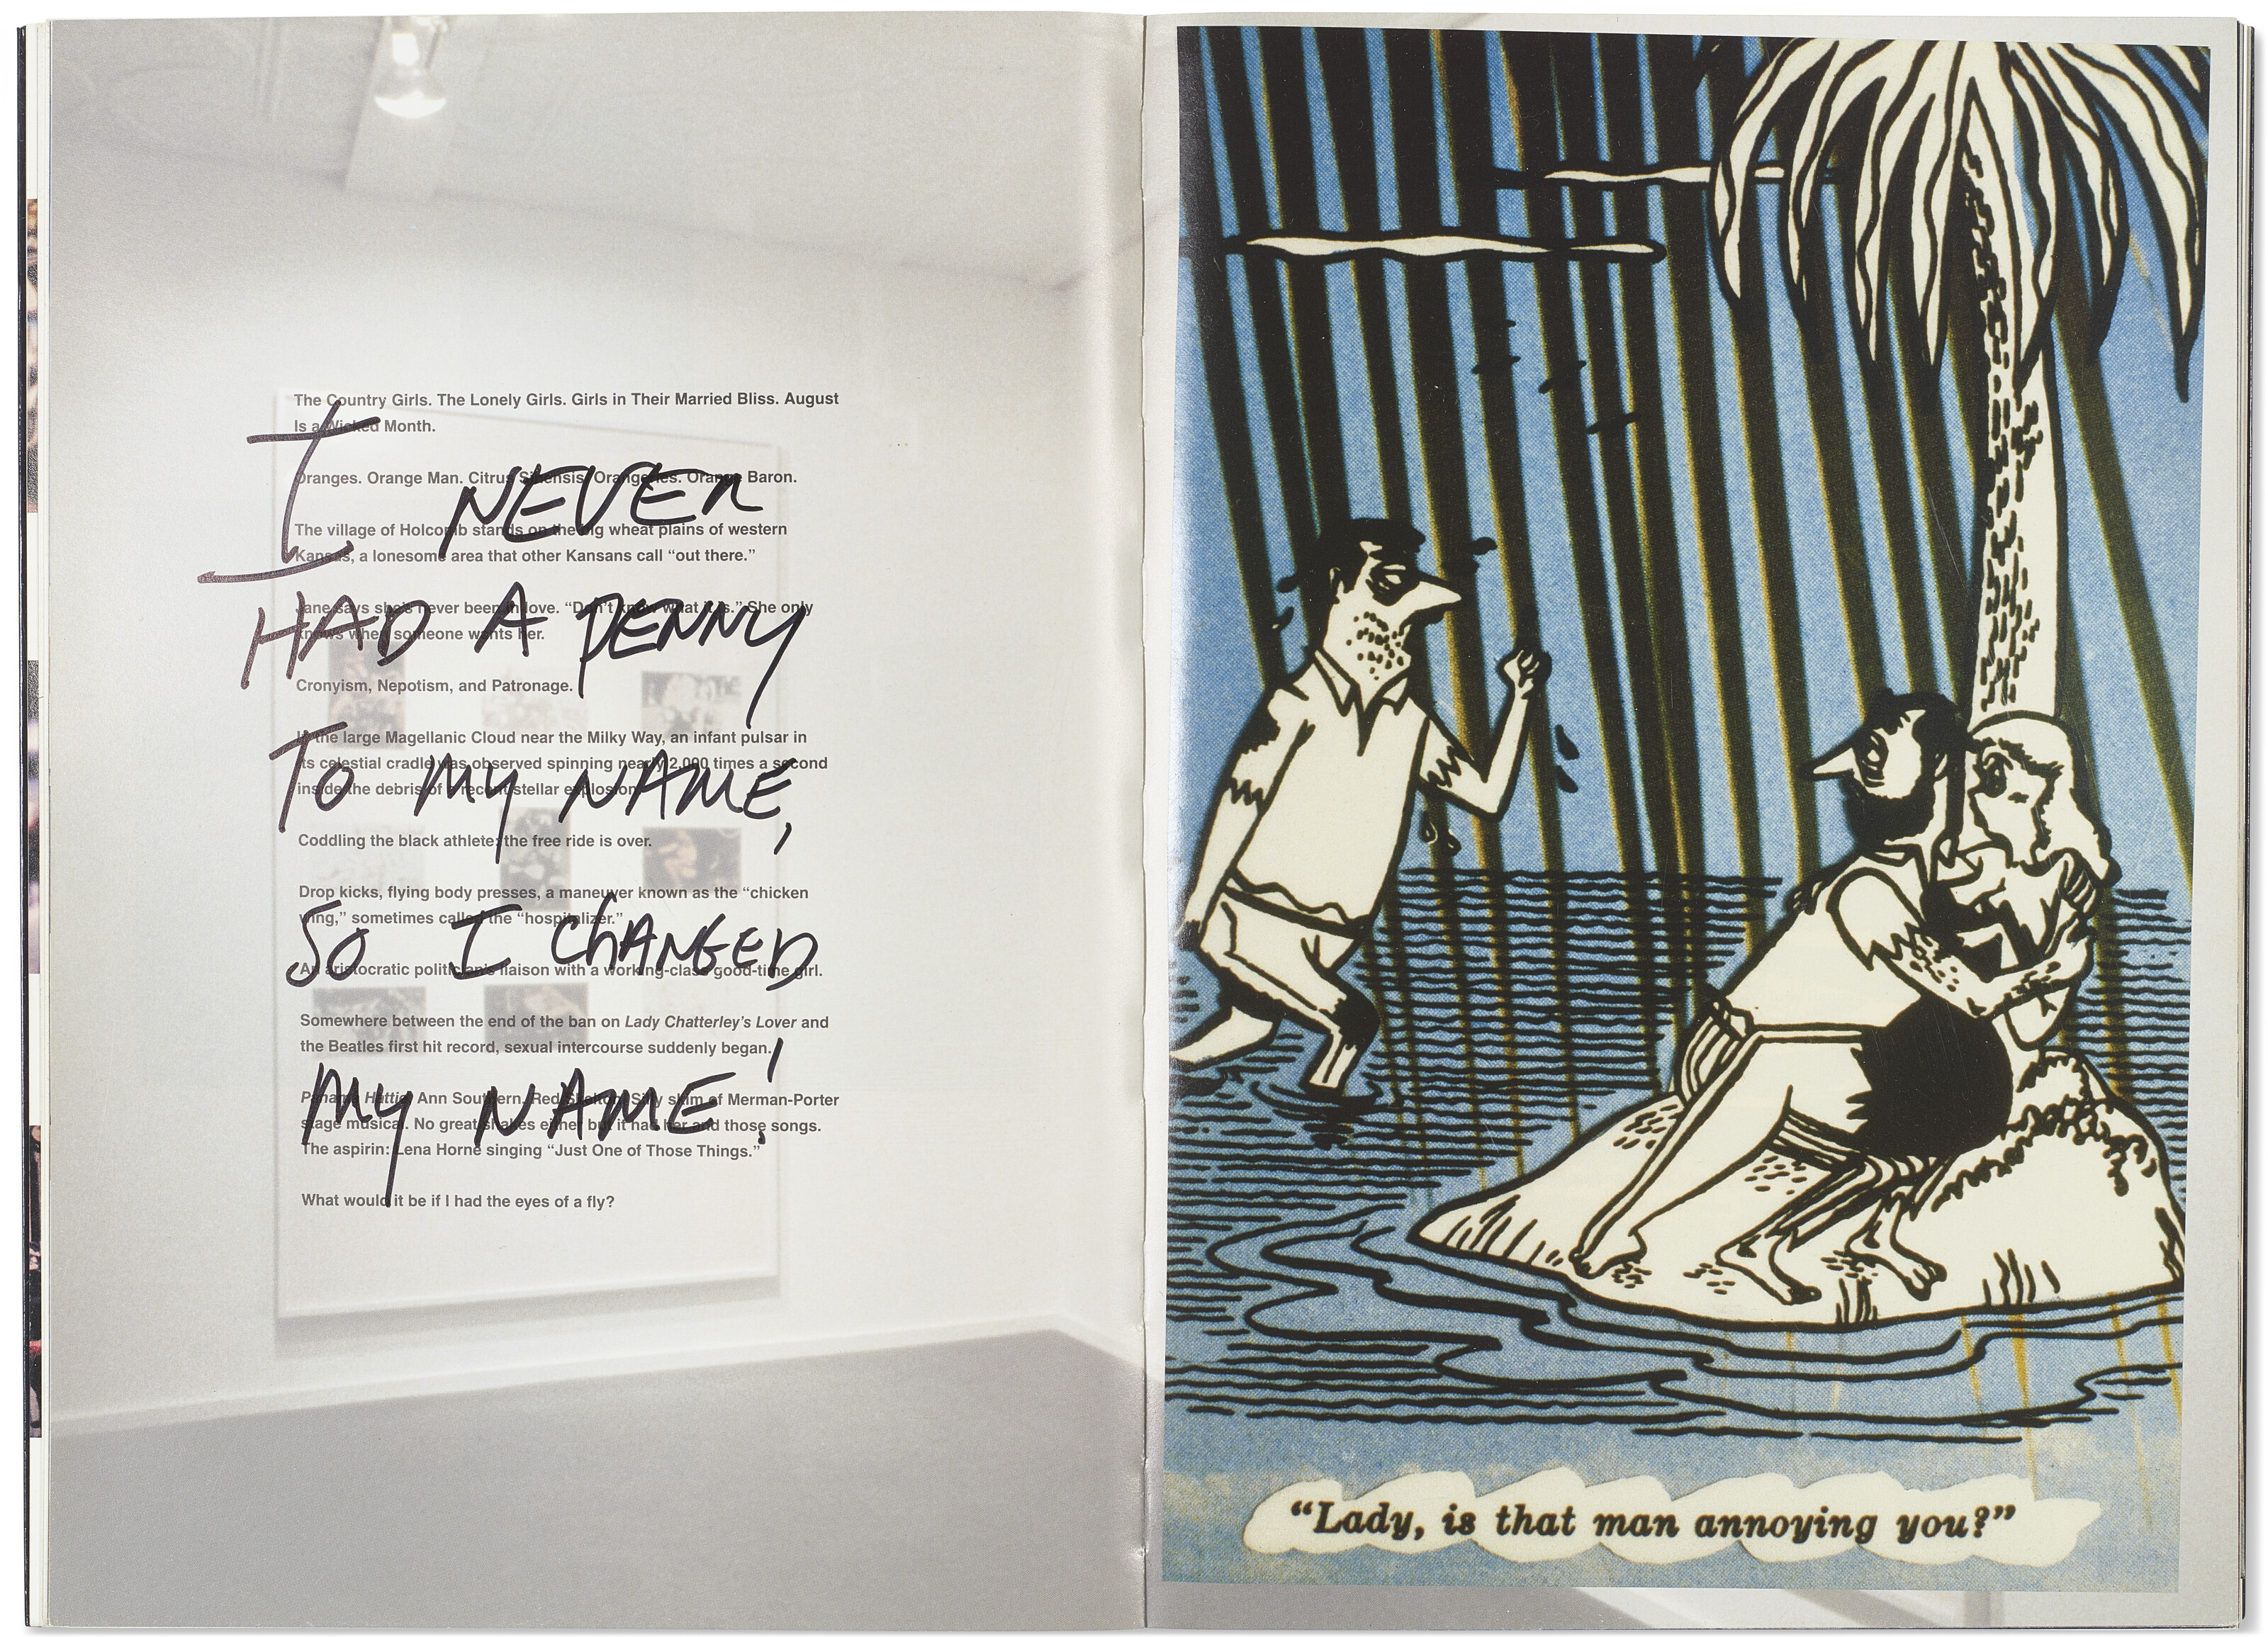 The Country Girls. The Lonely Girls. Girls in Their Married Bliss. August
Is a Wicked Month.
Oranges. Orange Man. Citrus Sinensis. Orangeries. Orange Baron.
The village of Holcomb stands on the big wheat plains of western
Kansas, a lonesome area that other Kansans call “out there.”
Jane says she's never been in love. “Don't know what it is.” She only
knows when someone wants her.
Cronyism, Nepotism, and Patronage.
In the large Magellanic Cloud near the Milky Way, an infant pulsar in
its celestial cradle was observed spinning nearly 2,000 times a second
inside the debris of a recent stellar explosion.
Coddling the black athlete: the free ride is over.
Drop kicks, flying body presses, a maneuver known as the “chicken
wing,” sometimes called the “hospitalizer.”
An aristocratic politician's liaison with a working-class good-time girl.
Somewhere between the end of the ban on Lady Chatterley's Lover and
the Beatles first hit record, sexual intercourse suddenly began.
Panama Hattie. Ann Southern. Red Skelton. Silly skim of Merman-Porter
stage musical. No great shakes either but it had her and those songs.
The aspirin: Lena Horne singing “Just One of Those Things.”
What would it be if I had the eyes of a fly?
I NEVER
HAD A PENNY
TO MY NAME,
SO I CHANGED
MY NAME!
“Lady, is that man annoying you?”